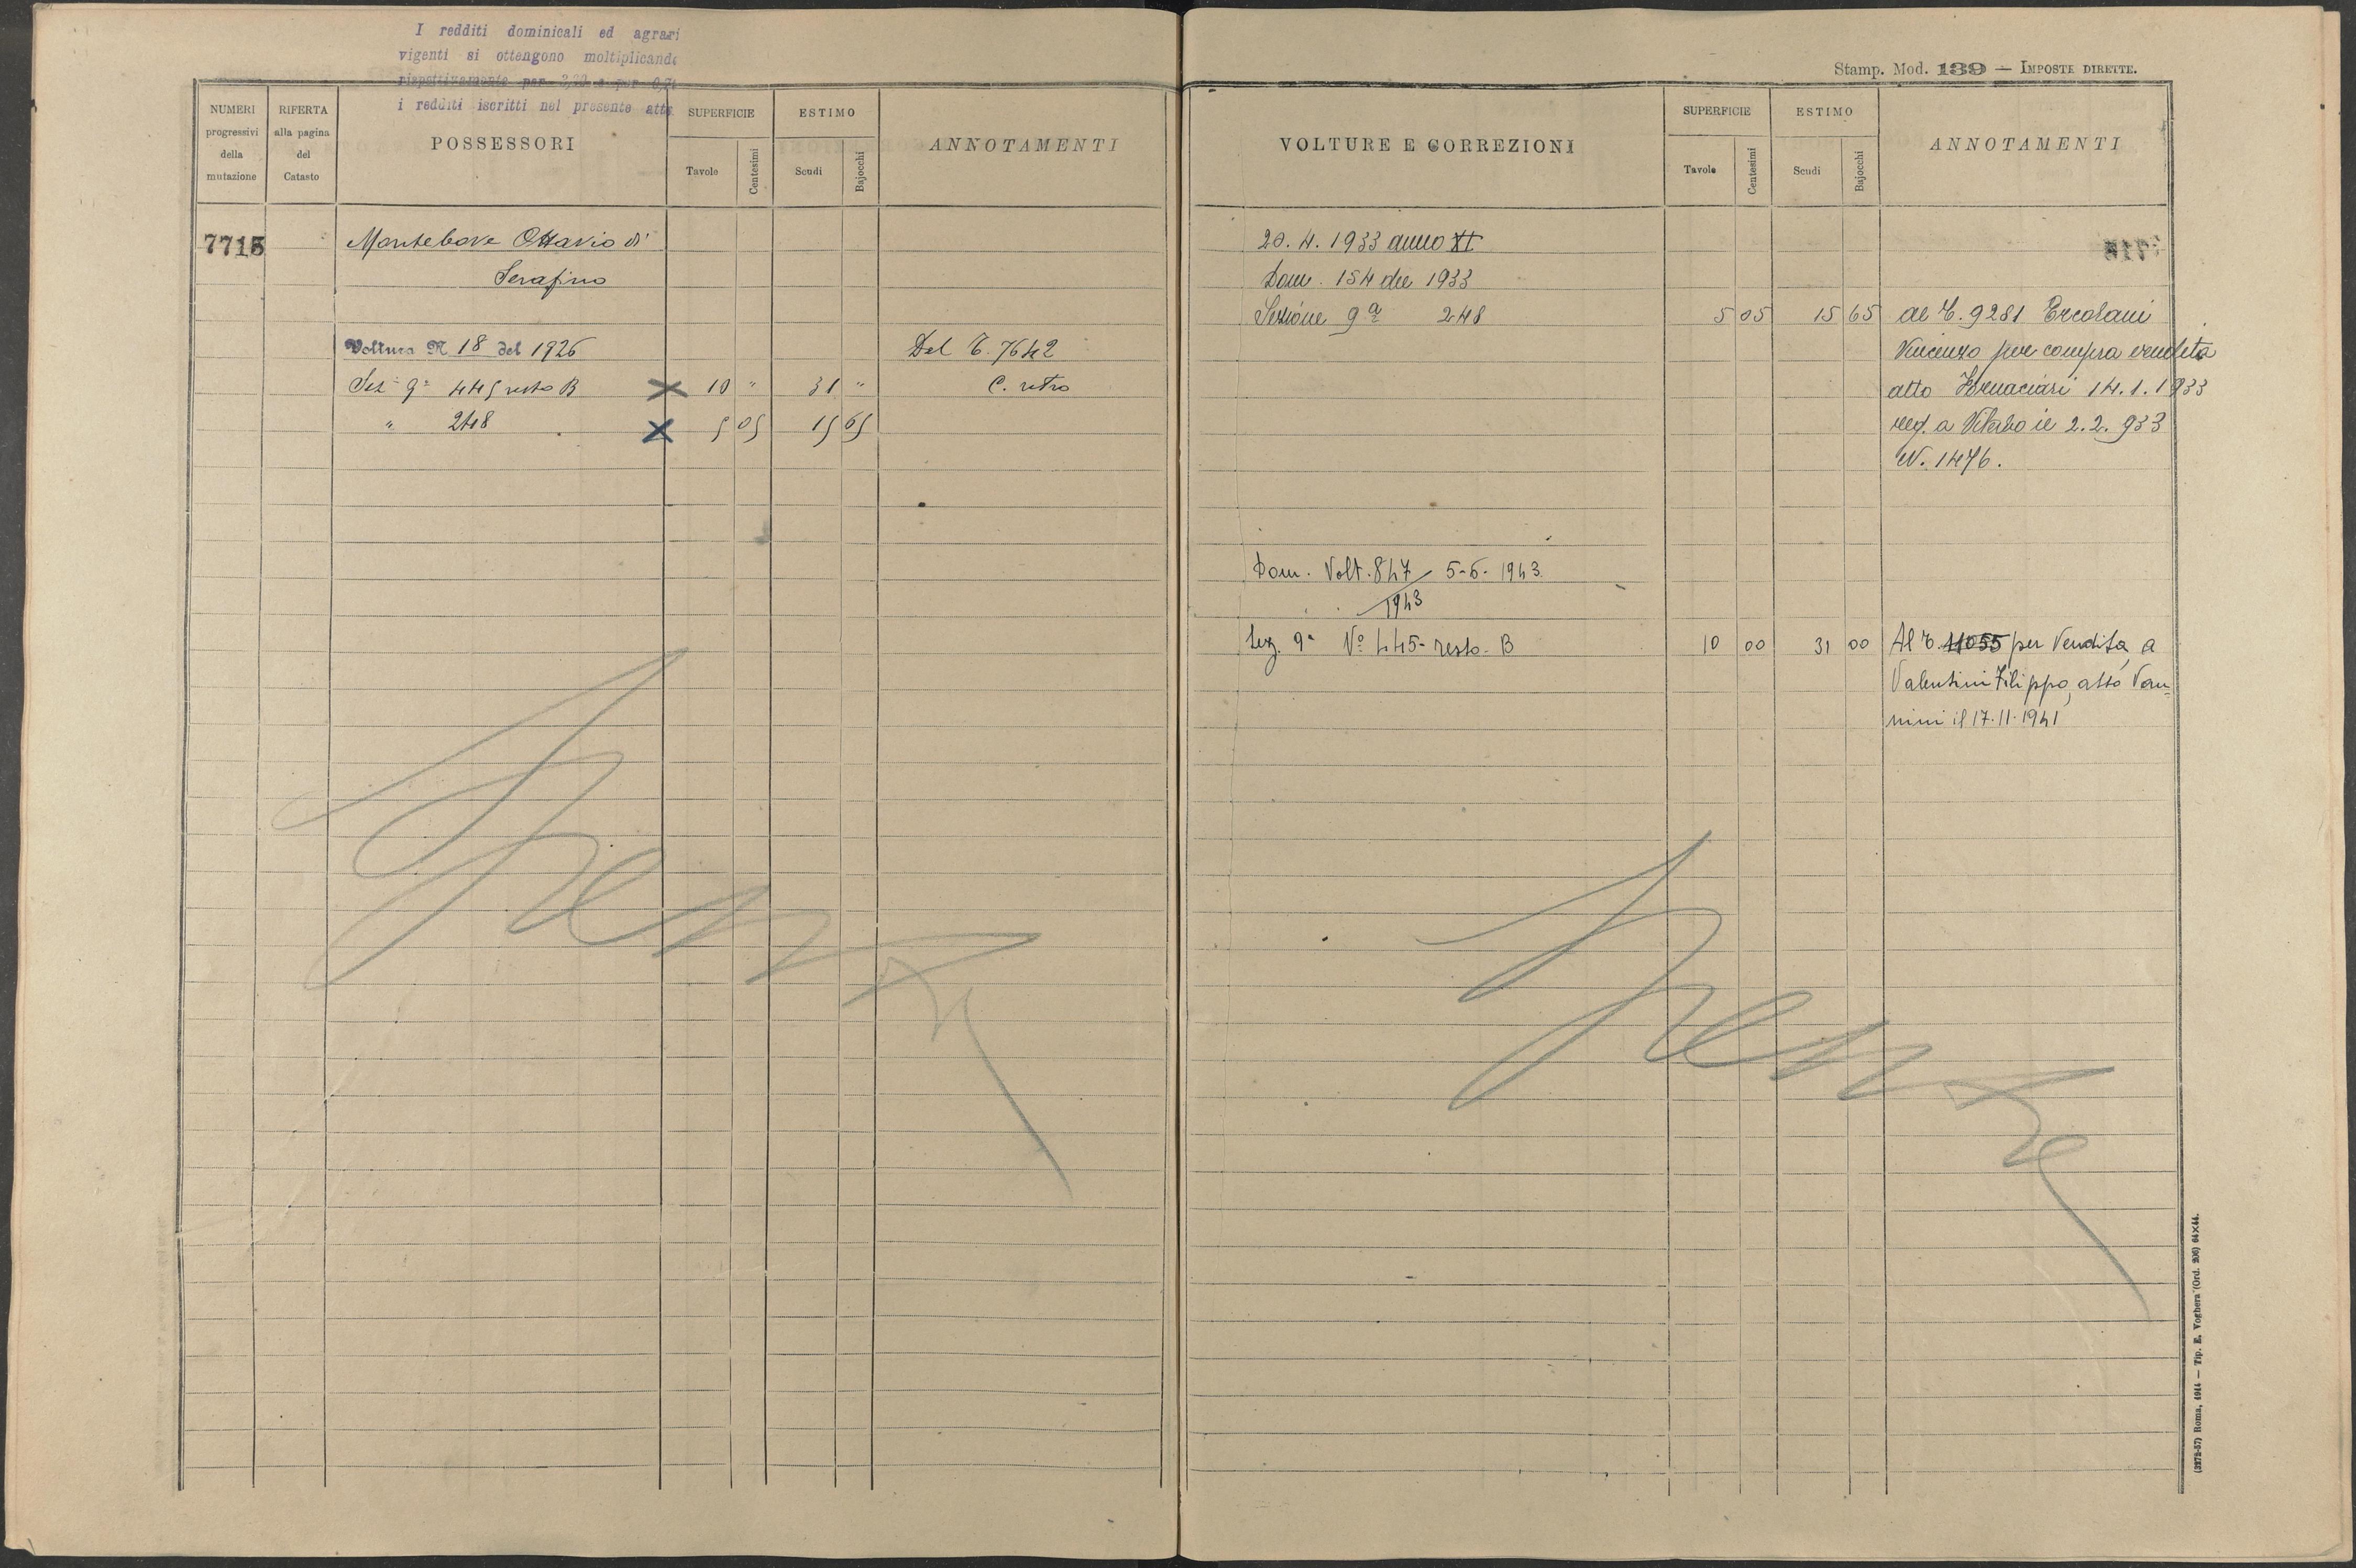 I redditi dominicali ed agrari
vigenti si ottengono moltiplicando
rispettivamente per 3,20 e per
i redditi iscritti nel presente atto
NUMERI progressivi della mutazione
RIFERTA alla pagina del Catasto
POSSESSORI
SUPERFICIE
Tavole
Centesimi
ESTIMO
Scudi
Bajocchi
ANNOTAMENTI
7715
Montebove Ottavio di
Serafino
Voltura N 18 del 1926
Del T. 7642
Sez 9ª 445 resto B 10 " 31 " C. retro
" 248 5 05 15 65
Stamp. Mod. 139 — IMPOSTE DIRETTE.
VOLTURE E CORREZIONI
SUPERFICIE
Tavole
Centesimi
ESTIMO
Scudi
Bajocchi
ANNOTAMENTI
20. 4. 1933 anno XI
Dom. 154 del 1933
Sezione 9ª 248 5 05 15 65 al T. 9281 Ercolani
Vincenzo per compra vendita
atto Fornaciari 14.1.1933
reg. a Viterbo il 2.2.933
N. 1476.
Dom. Volt. 847/1943 5-6-1943
Sez. 9ª Nº 445 resto B 10 00 31 00 Al T. 11055 per Vendita a
Valentini Filippo, atto Van-
nini il 17-11-1941
(3272-57) Roma, 1914 — Tip. E. Voghera (Ord. 206) 64×44.